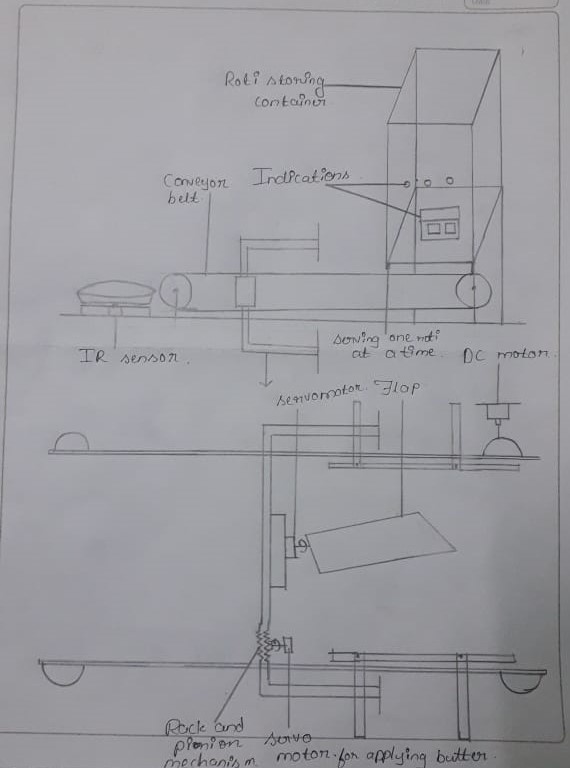 Roti storing
container
Conveyor
belt.
Indications
IR sensor.
serving one roti
at a time.
DC motor.
servomotor.
Flap
Rack and
pionion
mechanism
servo
motor for applying butter.